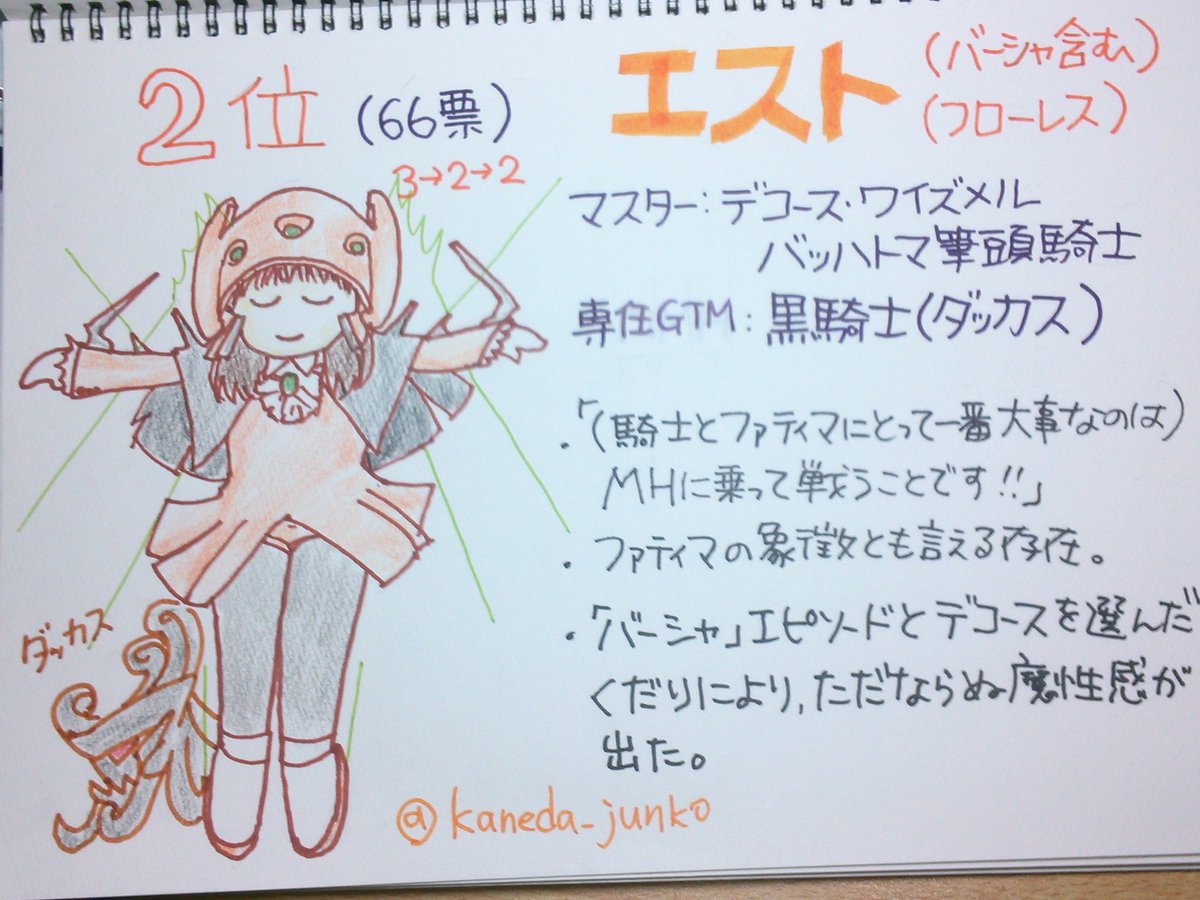 2位 (66票)
3→2→2
エスト
(バーシャ含む)
(フローレス)
マスター:デコース・ワイズメル
バッハトマ筆頭騎士
専任GTM:黒騎士(ダッカス)
・「(騎士とファティマにとって一番大事なのは)
MHに乗って戦うことです!!」
・ファティマの象徴とも言える存在。
・「バーシャ」エピソードとデコースを選んだ
くだりにより,ただならぬ魔性感が
出た。
ダッカス
@kaneda_junko